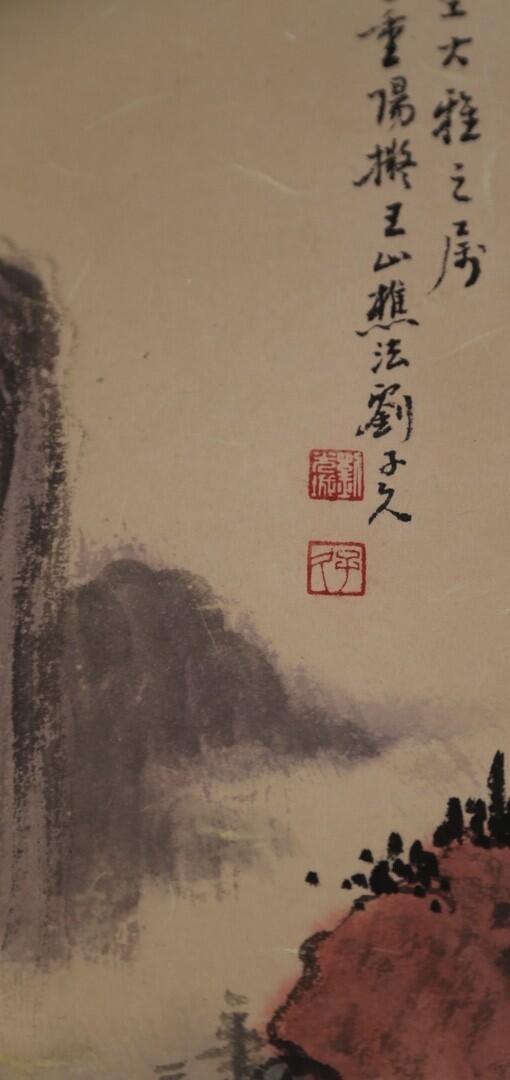 大雅之属
重陽擬王山樵法劉子久
子久